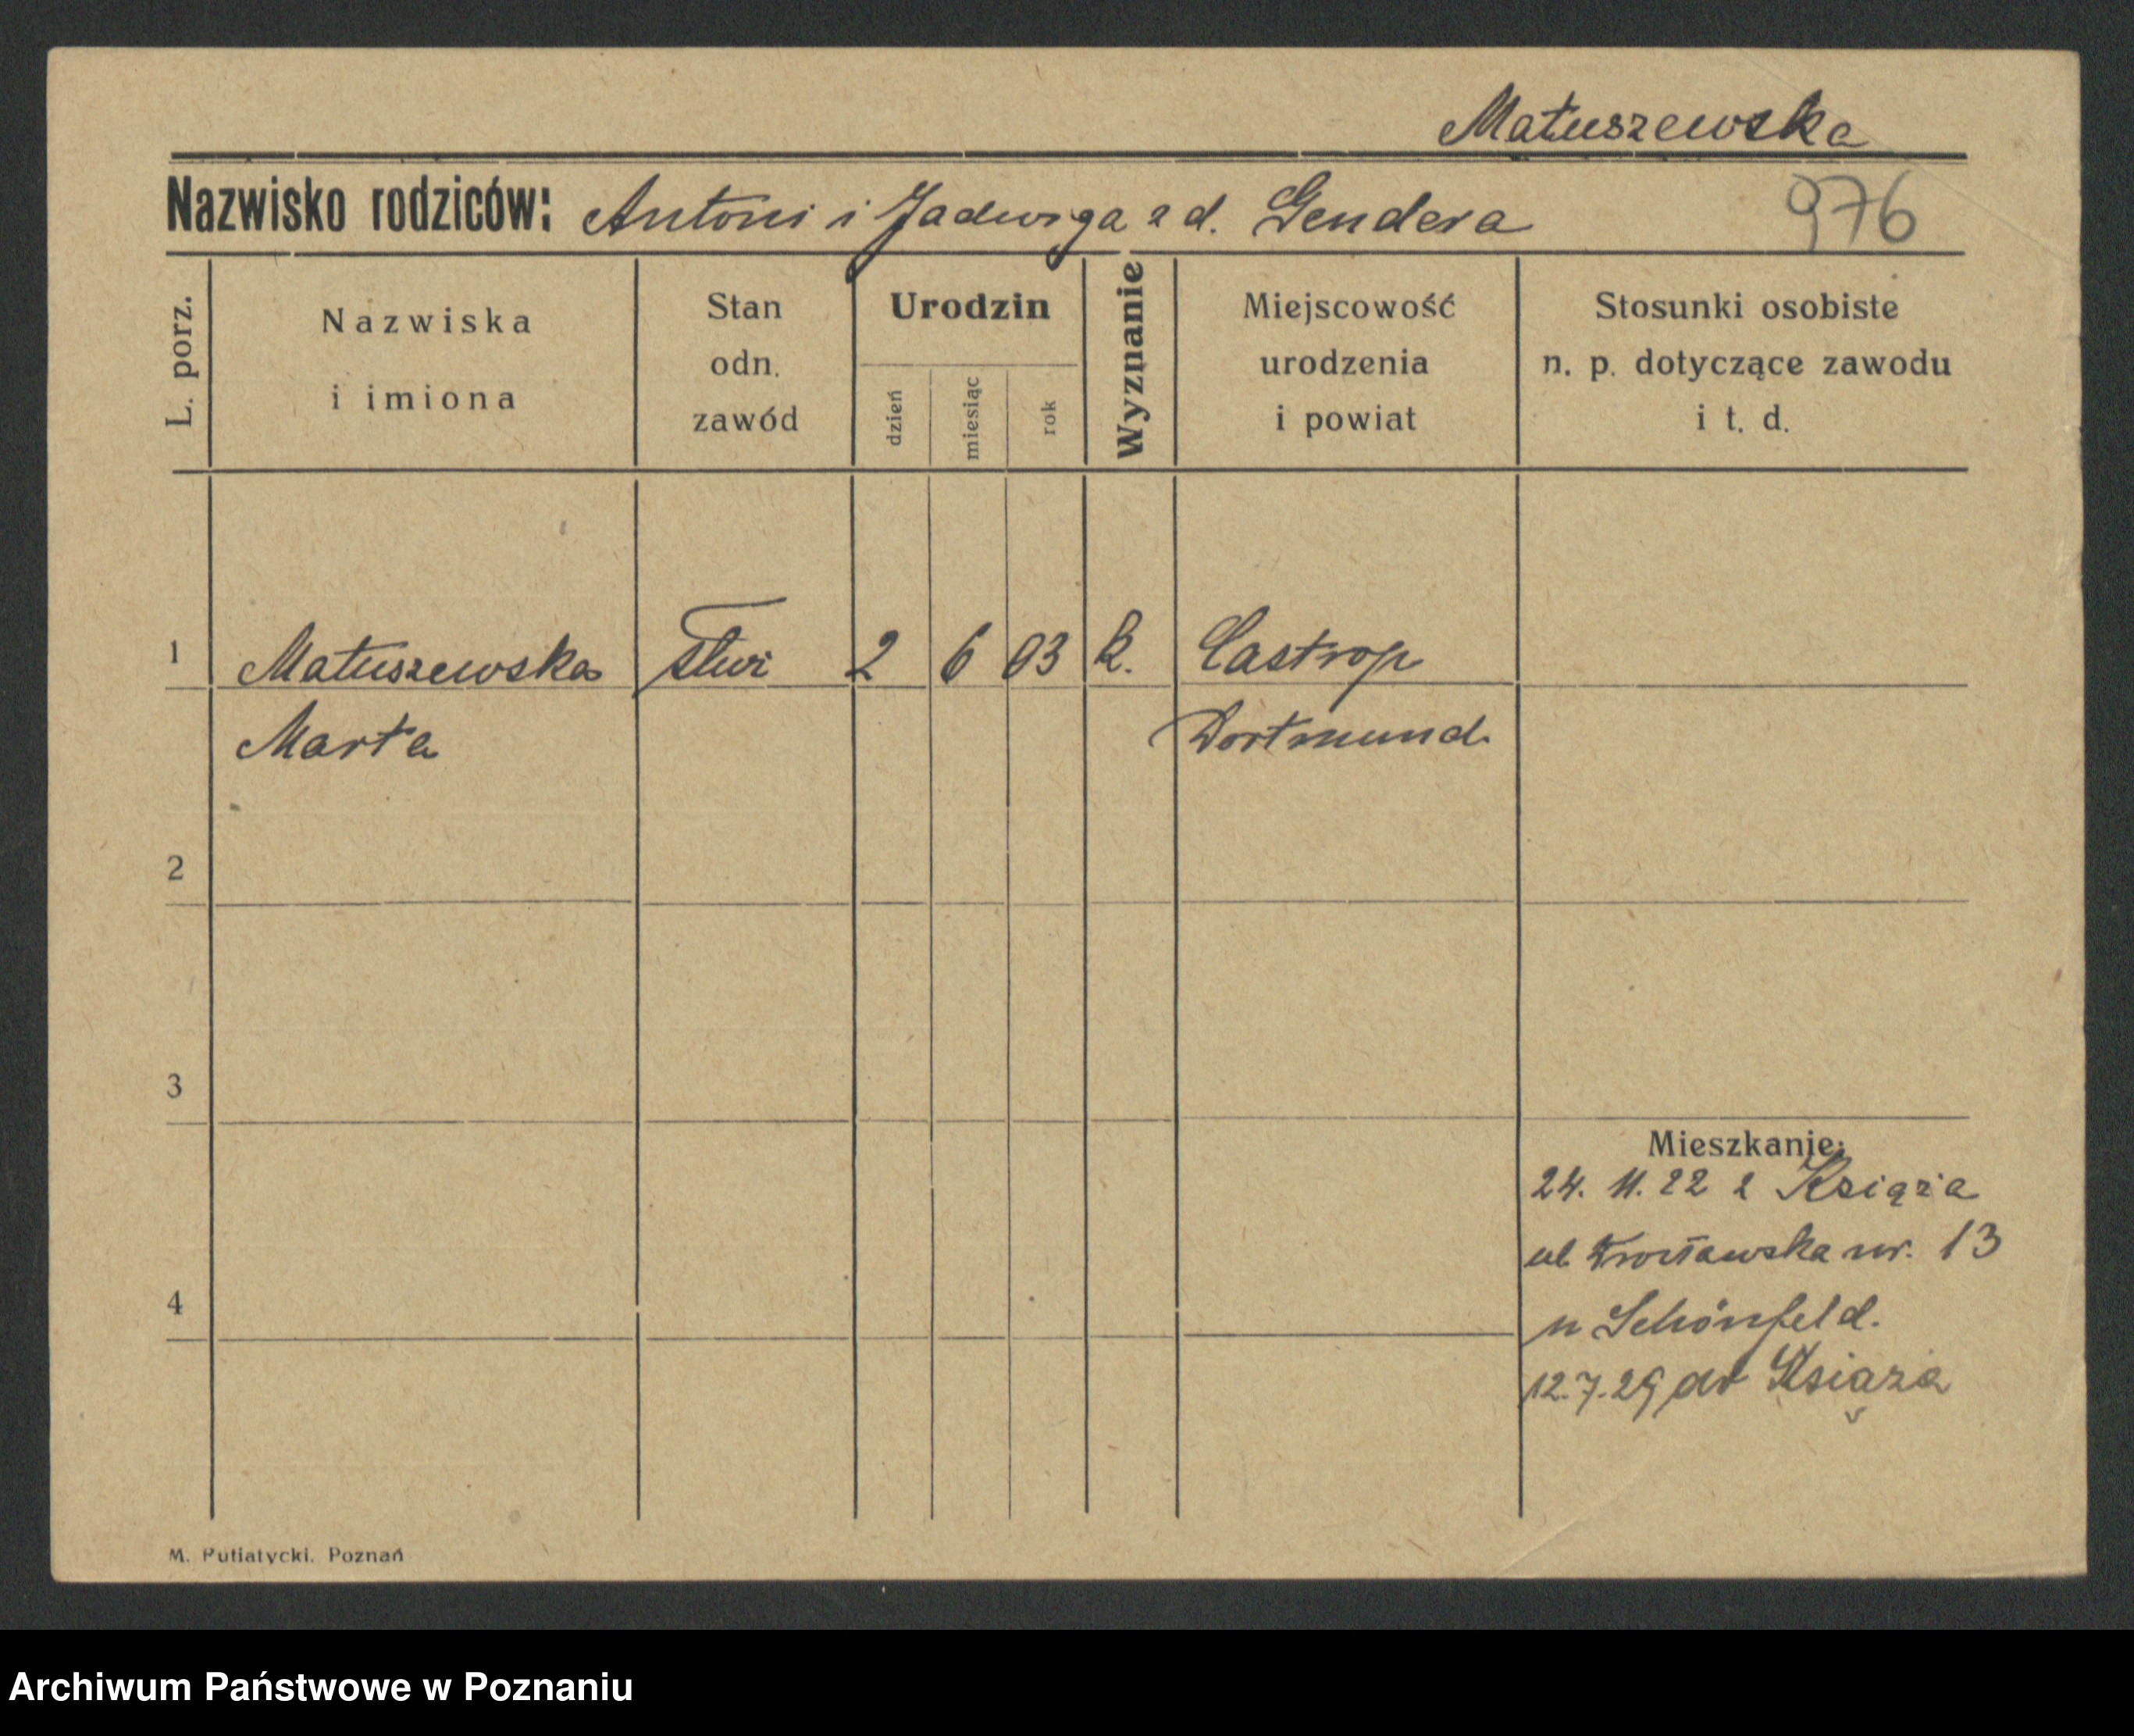 Matuszewska
Nazwisko rodziców: Antoni i Jadwiga z d. Gendera
976
L. porz.
Nazwiska
i imiona
Stan
odn.
zawód
Urodzin
dzień
miesiąc
rok
Wyznanie
Miejscowość
urodzenia
i powiat
Stosunki osobiste
n. p. dotyczące zawodu
i t. d.
1 Matuszewska 2 6 03 k. Castrop
Marta Dortmund
2
3
4
Mieszkanie:
24. 11. 22 z Książa
ul. Wrocławska nr. 13
u Schönfeld.
12.7.29 do Książa
M. Putiatycki. Poznań
Archiwum Państwowe w Poznaniu